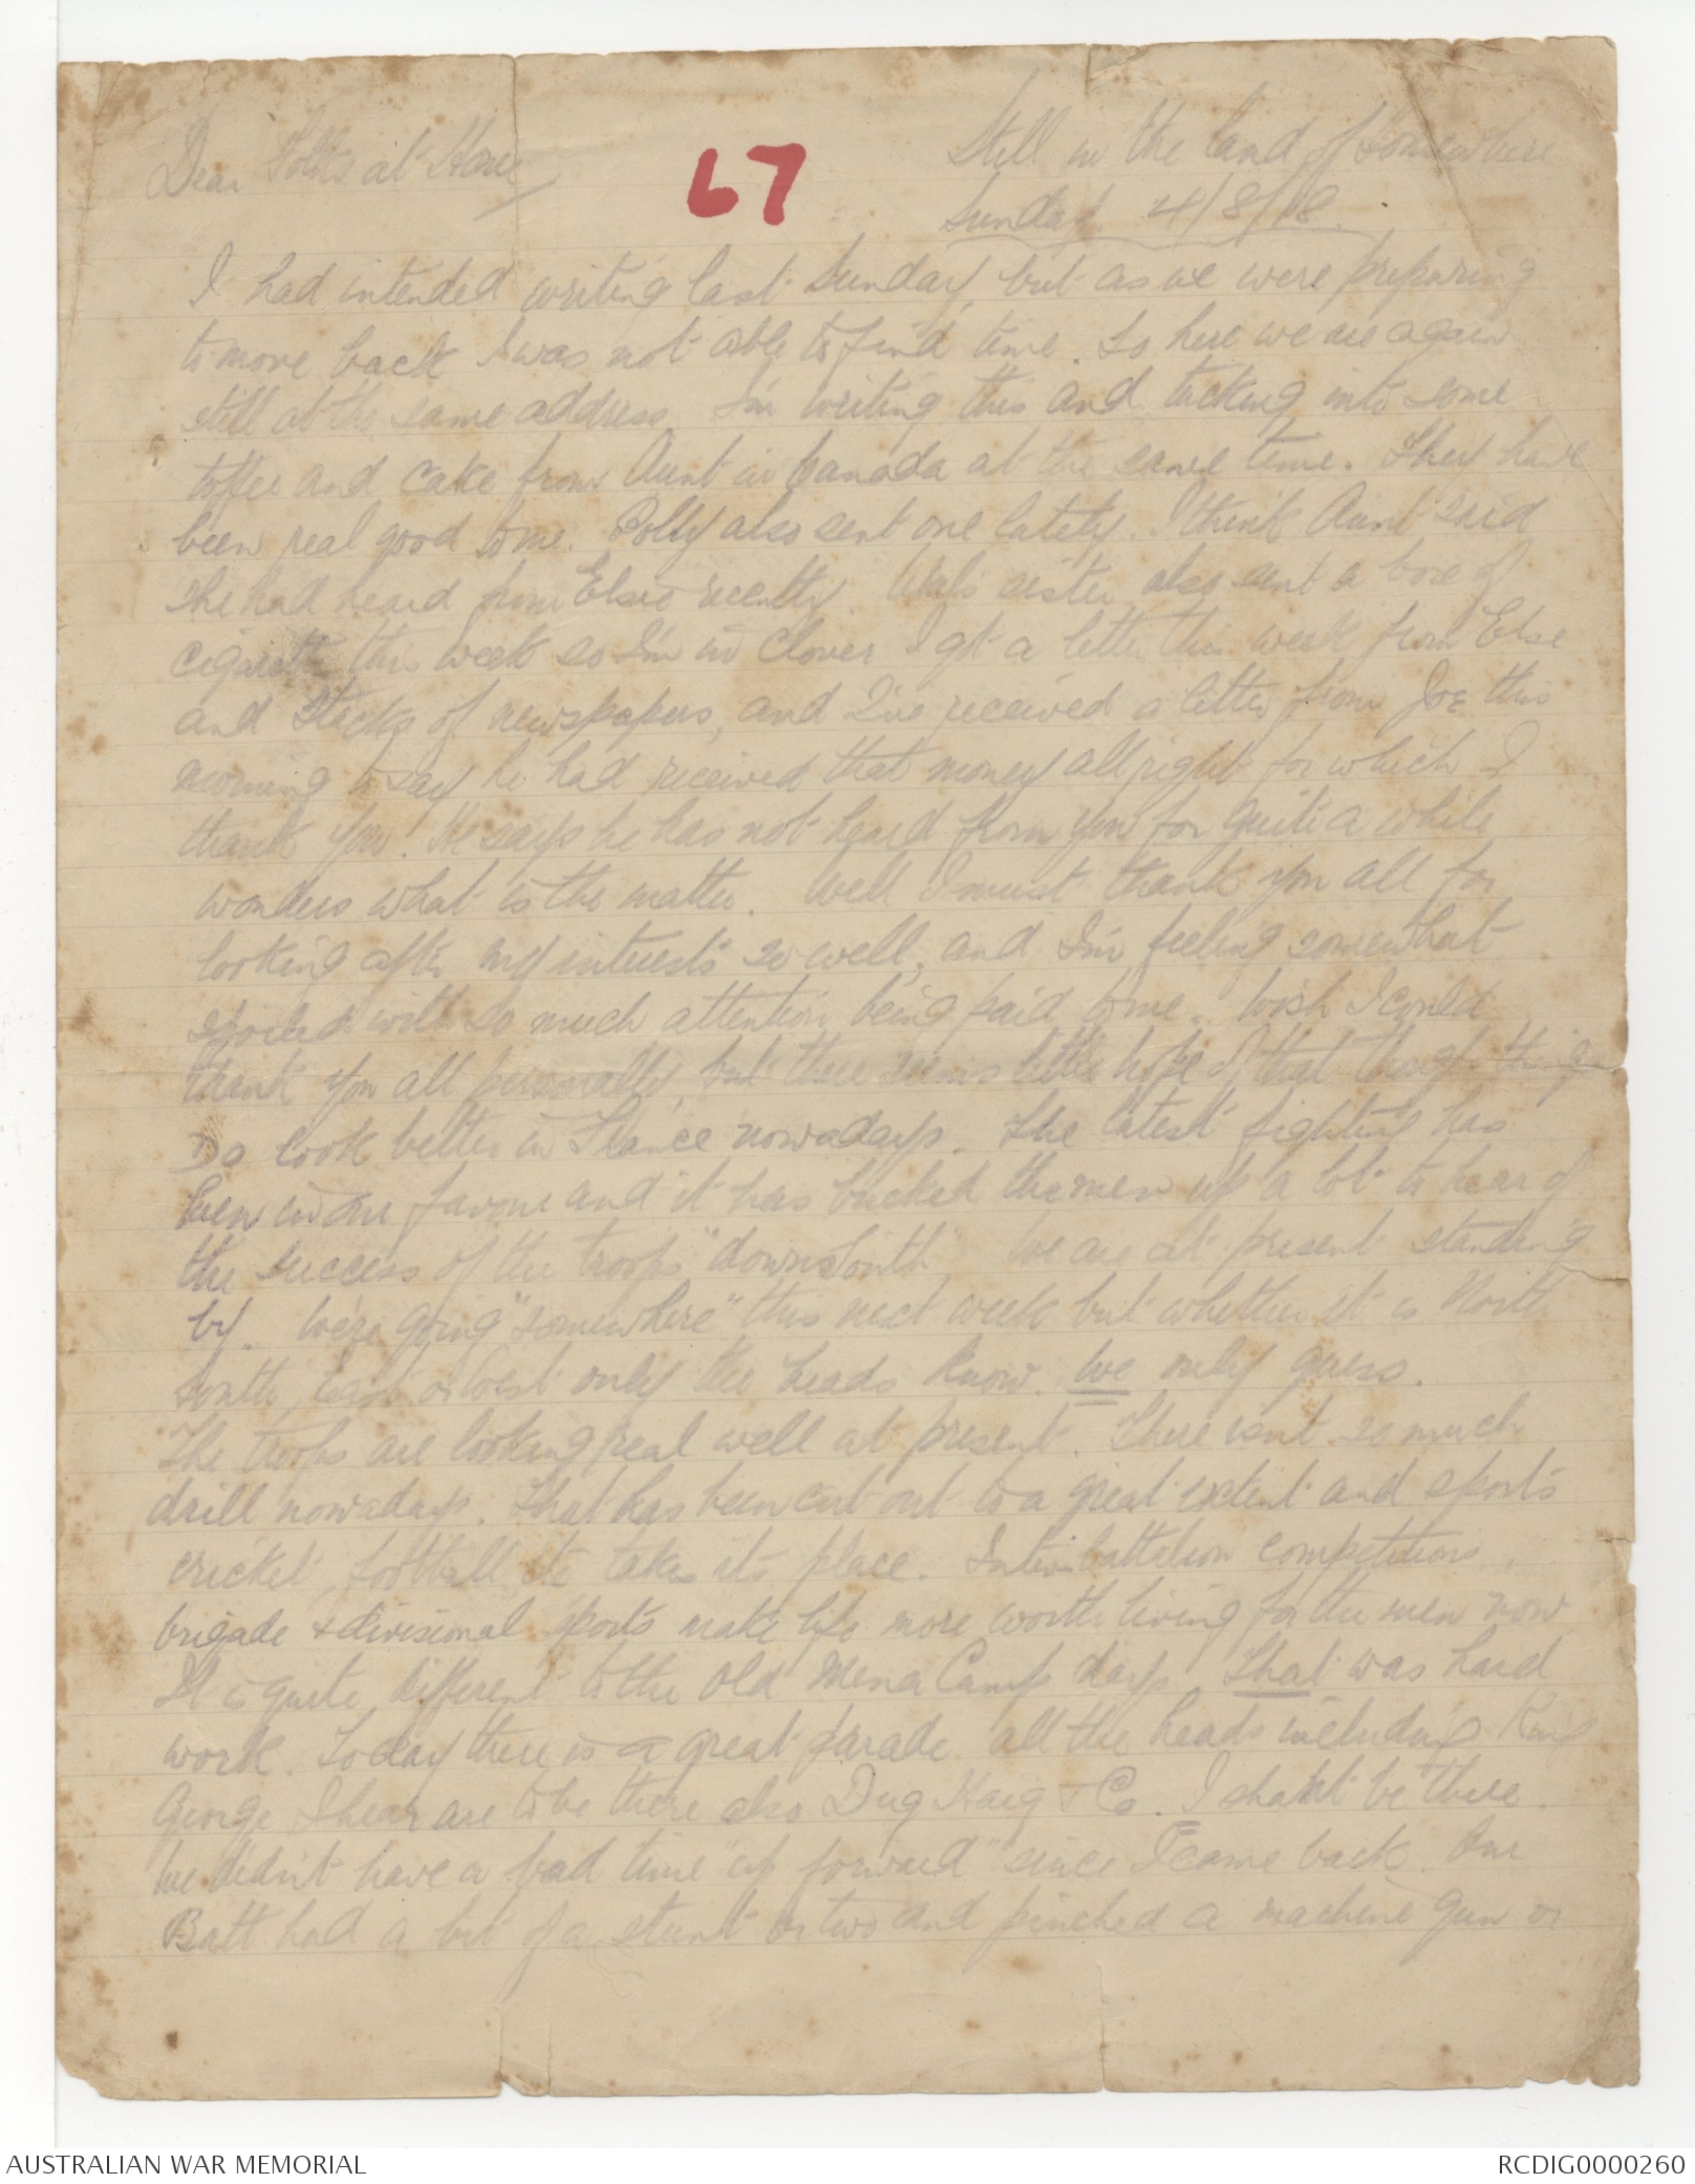 Dear Folks at Home
67
Still in the land of Somewhere
Sunday 4/8/18.
I had intended writing last Sunday, but as we were preparing
to move back I was not able to find time. So here we are again
still at the same address. I'm writing this and tucking into some
toffee and cake from Aunt in Canada at the same time. They have
been real good to me. Polly also sent one lately. I think Aunt said
she had heard from Elsie recently. sister also sent a box of
cigarette this week so I'm in clover I got a letter this week from Else
and stacks of newspapers, and I've received a letter from Joe this
morning to say he had received that money all right for which I
thank you. He says he has not heard from you for quite a while
wonders what is the matter. Well I must thank you all for
looking after my interests so well, and I'm feeling somewhat
spoiled with so much attention being paid to me. Wish I could
thank you all personally, but there seems little hope of that though things
Do look better in France nowadays. The latest fighting has
been in our favour and it has bucked the men up a lot to hear of
the success of the troops "down South" We are at present standing
by. We're going "somewhere" this next week but whether it is North
South, East or West only the heads know. We only guess.
The troops are looking real well at present. There isnt so much
drill nowadays. That has been cut out to a great extent and sports
cricket, football etc takes its place. Inter battalion competitions,
brigade & divisional sports make life more worth living for the men now
It is quite different to the old Mena Camp days. That was hard
work. Today there is a great parade. all the heads including King
George I hear are to be there also Dug Haig & Co. I shant be there.
We didn't have a bad time "up forward" since I came back. Our
Batt had a bit of a stunt or two and pinched a machine gun or
AUSTRALIAN WAR MEMORIAL
RCDIG0000260